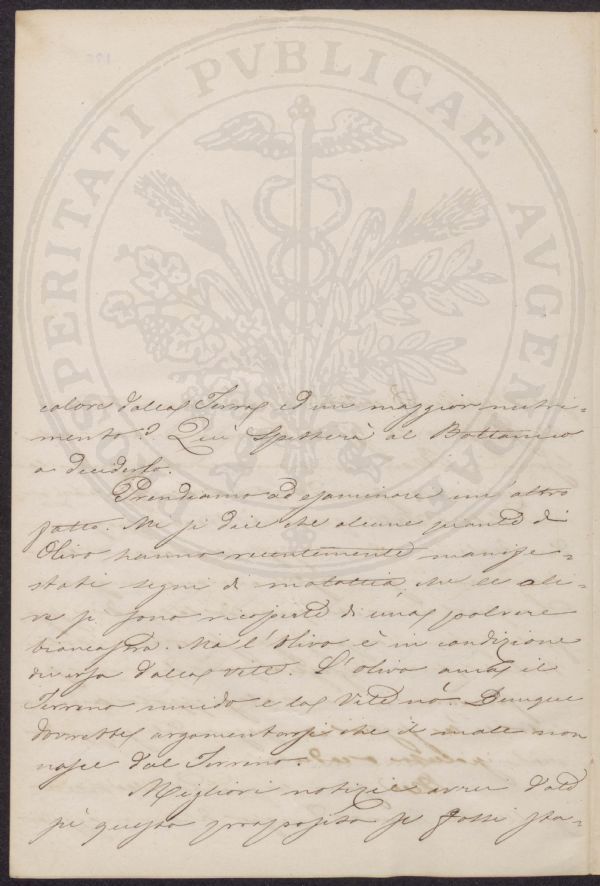 PROSPERITATI PVBLICAE AVGENDAE
calore dalla Terra ed un maggior nutri-
mento? Qui spetterà al Bottanico
a deciderlo.
Prendiamo ad esaminare un'altro
fatto. Mi si dice che alcune piante di
Olivo hanno recentemente manife-
stati segni di malattia, che le oli-
ve si sono ricoperte di una polvere
biancastra. Ma l'Olivo è in condizione
diversa dalla vite. L'olivo ama il
Terreno umido e la Vite nò. Dunque
dovrebbe argomentarsi che il male non
nasce dal Terreno.
Migliori notizie avrei date
sù questo proposito se fossi sta-